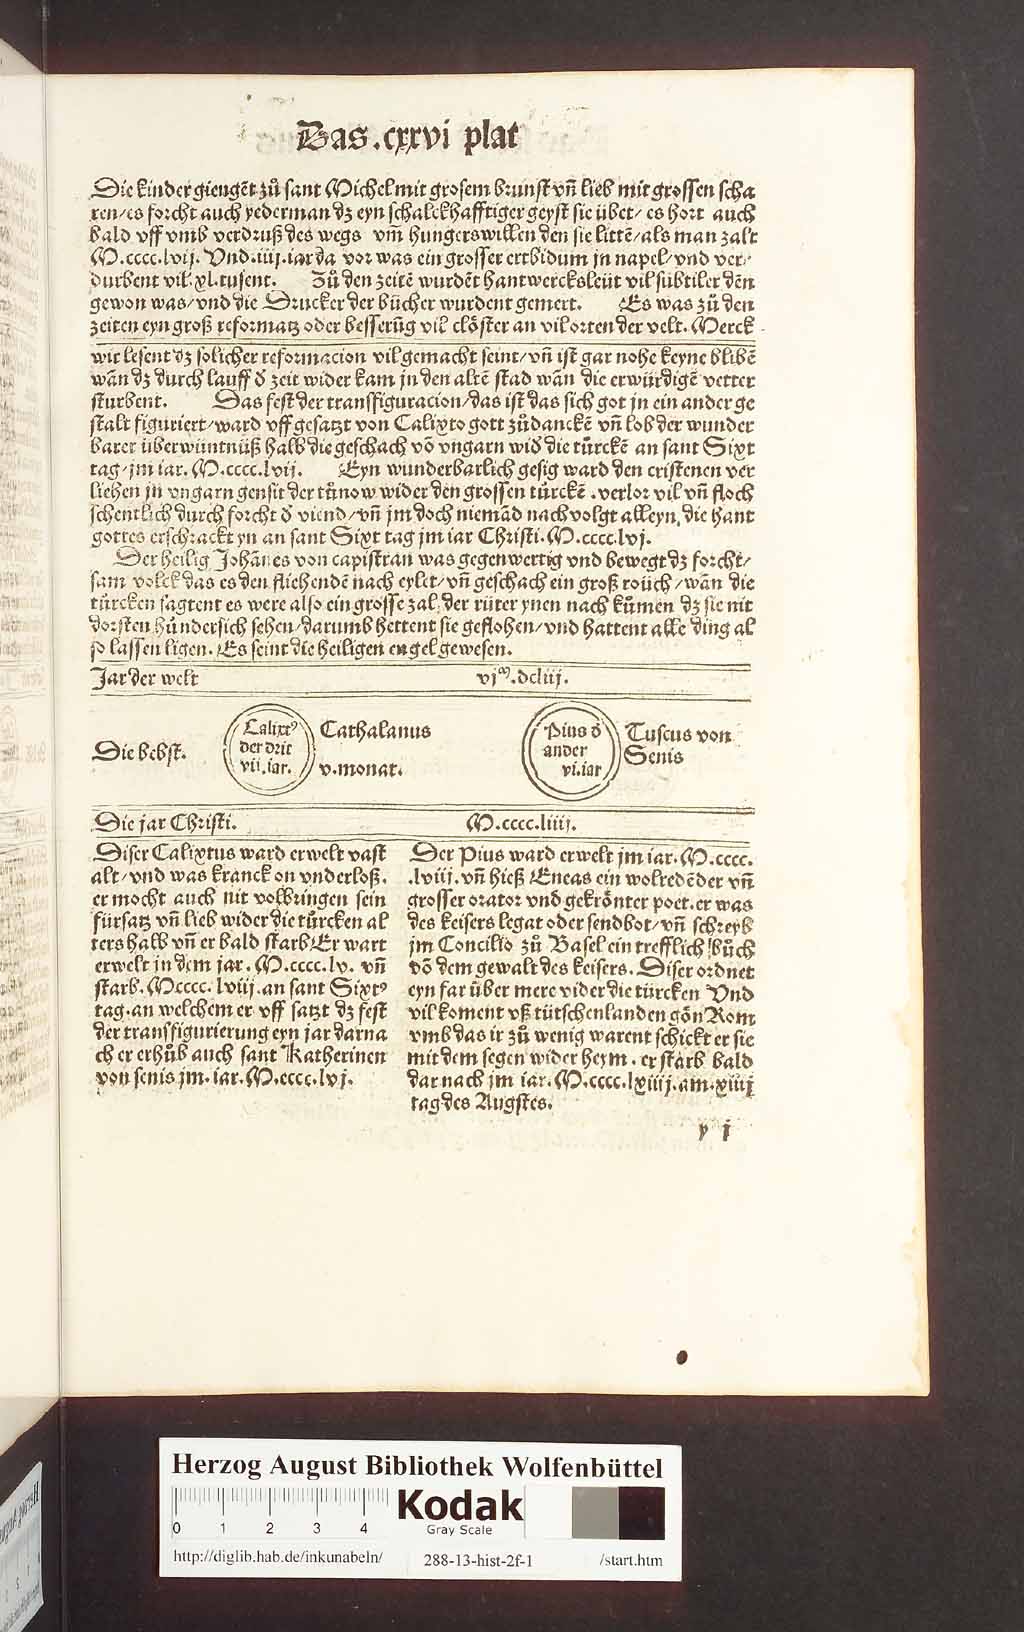 Das .cxxvi plat
Die kinder giengēt zů sant Michel mit grosem brunst vñ lieb mit grossen scha
ren/es forcht auch yederman dz eyn schalckhafftiger geyst sie übet/ es hort auch
bald vff vmb verdruß des wegs vm̄ hungers willen den sie littē/als man zalt
M.cccc.lvij. Vnd .iiij. iar da vor was ein grosser ertbidum in napel/vnd ver-
durbent vil .xl. tusent. Zů den zeitē wurdēt hantwercksleüt vil subtiler dēn
gewon was/vnd die Drucker der bücher wurdent gemert. Es was zů den
zeiten eyn groß reformatz oder besserūg vil clöster an vil orten der velt. Merck
wir lesent dz solicher reformacion vil gemacht seint/vñ ist gar nohe keyne blibē
wān dz durch lauff d̄ zeit wider kam jn den altē stad wān die erwürdigē vetter
sturbent. Das fest der transfiguracion/das ist das sich got jn ein ander ge
stalt figuriert/ward vff gesatzt von Calixto gott zůdanckē vñ lob der wunder
barer überwüntnüß halb die geschach vō vngarn wid̄ die türckē an sant Sixt
tag/jm iar. M.cccc.lvij. Eyn wunderbarlich gesig ward den cristenen ver
liehen jn vngarn gensit der tůnow wider den grossen türckē .verlor vil vñ floch
schentlich durch forcht d̄ viend/vñ jm doch niemād nachvolgt alleyn, die hant
gottes erschrackt yn an sant Sixt tag jm iar Christi. M.cccc.lvj.
Der heilig Johānes von capistran was gegenwertig vnd bewegt dz forcht/
sam volck das es den fliehendē nach eylet/vñ geschach ein groß roüch/wān die
türcken sagtent es were also ein grosse zal der rüter ynen nach kůmen dz sie nit
dorsten hündersich sehen/darumb hettent sie geflohen/vnd hattent alle ding al
so lassen ligen. Es seint die heiligen engel gewesen.
Jar der welt vjᵐ.dcliij.
Die bebst. Calixtꝰ der drit vii.iar. Cathalanus v.monat. Pius d̄ ander vi.iar Tuscus von Senis
Die jar Christi. M.cccc.liiij.
Diser Calixtus ward erwelt vast
alt/vnd was kranck on vnderloß.
er mocht auch nit volbringen sein
fürsatz vñ lieb wider die türcken al
ters halb vñ er bald starb/Er wart
erwelt in dem jar. M.cccc.lv. vñ
starb. Mcccc.lviij.an sant Sixtꝰ
tag.an welchem er vff satzt dz fest
der transfigurierung eyn jar darna
ch er erhůb auch sant Katherinen
von senis jm. iar. M.cccc.lvj.
Der Pius ward erwelt jm iar. M.cccc.
.lviij. vñ hieß Eneas ein wolredēder vñ
grosser orator vnd gekrönter poet.er was
des keisers legat oder sendbot/vñ schreyb
jm Concilio zů Basel ein trefflich bůch
vō dem gewalt des keisers. Diser ordnet
eyn far über mere vider die türcken Vnd
vil koment vß tütschenlanden gōn Rom
vmb das ir zů wenig warent schickt er sie
mit dem segen wider heym. er starb bald
dar nach jm iar. M.cccc.lxiiij.am.xiiij
tag des Augstes.
y j
Herzog August Bibliothek Wolfenbüttel
0 1 2 3 4
Kodak
Gray Scale
http://diglib.hab.de/inkunabeln/ 288-13-hist-2f-1 /start.htm